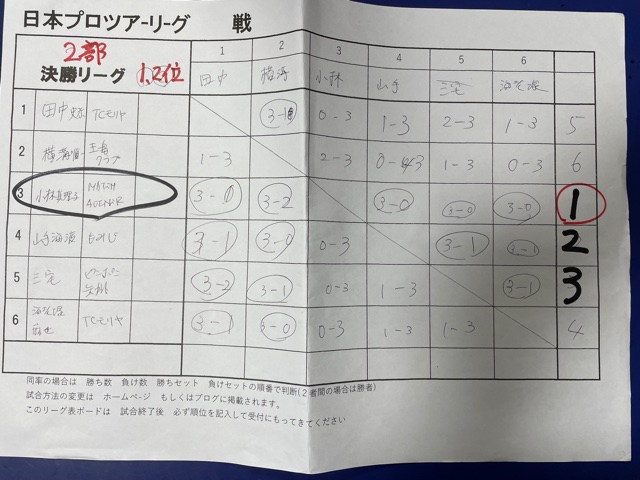 日本プロツアーリーグ 戦
2部
決勝リーグ 1,2位
1 2 3 4 5 6
田中 横溝 小林 山手 三宅
1 田中 TCモリヤ 3-1 0-3 1-3 2-3 1-3 5
2 横溝 クラブ 1-3 2-3 0-3 1-3 0-3 6
3 小林真理子 MATCH 3-0 3-2 3-0 3-0 3-0 1
4 山手 もみじ 3-1 3-0 0-3 3-1 3-1 2
5 三宅 ピンポン 3-2 3-1 0-3 1-3 3-1 3
6 TCモリヤ 3-1 3-0 0-3 1-3 1-3 4
同率の場合は 勝ち数 負け数 勝ちセット 負けセットの順番で判断(2者間の場合は勝者)
試合方法の変更は ホームページ もしくはブログに掲載されます。
このリーグ表ボードは 試合終了後 必ず順位を記入して受付にもってきてください